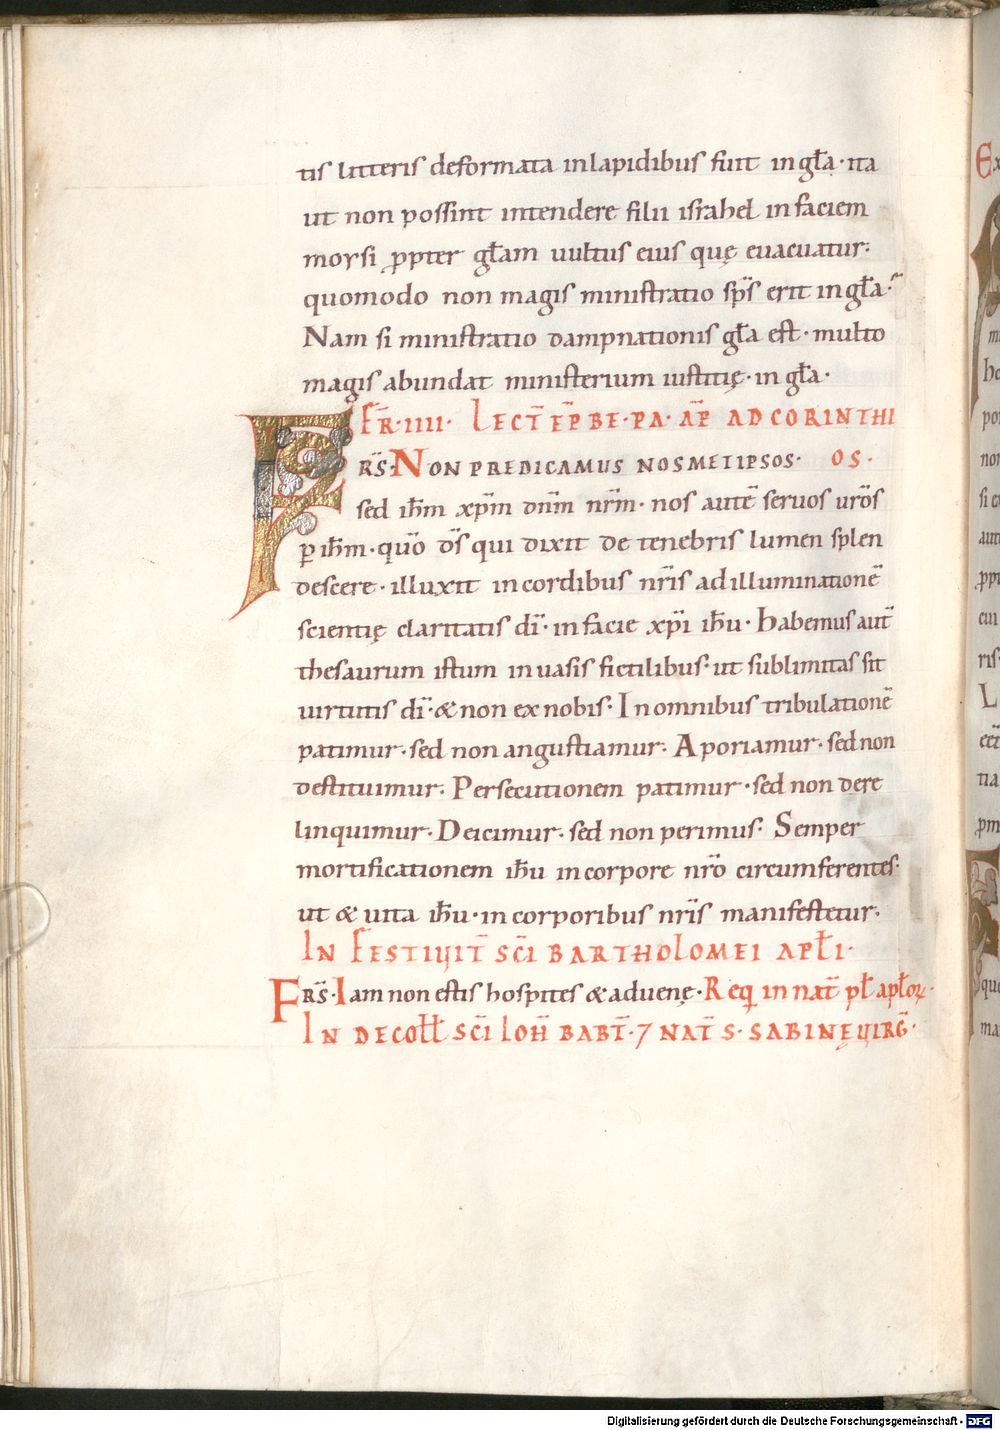 tis litteris deformata in lapidibus fuit in gła· ita
ut non possint intendere filii israhel in faciem
moysi ꝓpter głam uultus eius quę euacuatur·
quomodo non magis ministratio sp̄s erit in gła·
Nam si ministratio dampnationis gła est· multo
magis abundat ministerium iustitię· in gła·
FER̄·IIII· LECT̄ EP̄ BE·PA·AP̄ AD CORINTHI
FRS̄· NON PREDICAMUS NOSMETIPSOS· OS·
sed ih̄m xp̄m dn̄m nr̄m· nos aute̅ seruos ur̄os
ꝑ ih̄m· qūo d̄s qui dixit de tenebris lumen splen
descere· illuxit in cordibus nr̄is ad illuminatione̅
scientię claritatis dī· in facie xp̄i ih̄u· Habemus aut̅
thesaurum istum in uasis fictilibus· ut sublimitas sit
uirtutis dī· & non ex nobis· In omnibus tribulatione̅
patimur· sed non angustiamur· Aporiamur· sed non
destituimur· Persecutionem patimur· sed non dere
linquimur· Deicimur· sed non perimus· Semper
mortificationem ih̄u in corpore nr̄o circumferentes·
ut & uita ih̄u· in corporibus nr̄is manifestetur·
IN FESTIUIT̄ SC̄I BARTHOLOMEI APŁI·
FRS̄· Iam non estis hospites & aduenę· Req̄ in nat̄ pł apłoꝝ·
IN DECOŁŁ SC̄I IOH̄ BABT̄· 7 NAT̄ S· SABINĘ UIRG̅·
Digitalisierung gefördert durch die Deutsche Forschungsgemeinschaft - DFG